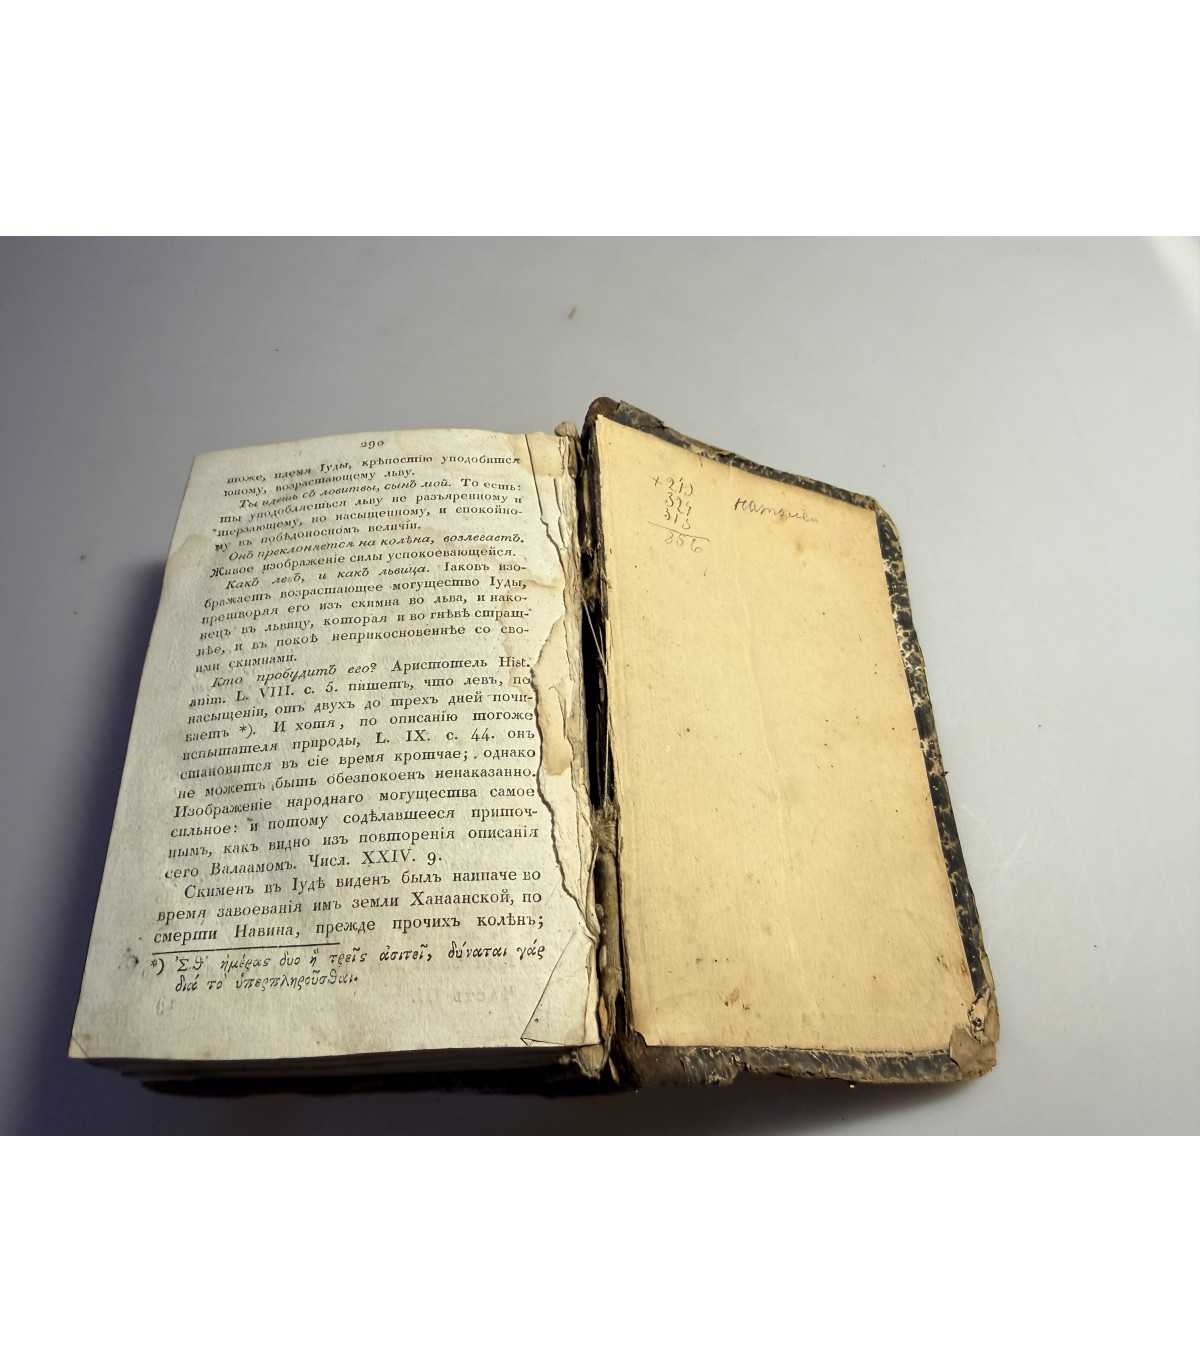 290
тоже, племя Іуды, крѣпостію уподобится
юному, возрастающему льву.
Ты идешь съ ловитвы, сынъ мой. То есть:
ты уподобляешься льву не разъяренному и
терзающему, но насыщенному, и спокойно-
му въ побѣдоносномъ величіи.
Онъ преклоняется на колѣна, возлегаетъ.
Живое изображеніе силы успокоевающейся.
Какъ левъ, и какъ львица. Іаковъ изо-
бражаетъ возрастающее могущество Іуды,
претворяя его изъ скимна во льва, и нако-
нецъ въ львицу, которая и во гнѣвѣ страш-
нѣе, и въ покоѣ неприкосновеннѣе со сво-
ими скимнами.
Кто пробудитъ его? Аристотель Hist.
anim. L. VIII. c. 5. пишетъ, что левъ, по
насыщеніи, отъ двухъ до трехъ дней почи-
ваетъ *). И хотя, по описанію тогоже
испытателя природы, L. IX. c. 44. онъ
становится въ сіе время кротче; однако
не можетъ быть обезпокоен ненаказанно.
Изображеніе народнаго могущества самое
сильное: и потому содѣлавшееся притоt-
нымъ, какъ видно изъ повторенія описанія
сего Валаамомъ. Числ. XXIV. 9.
Скименъ въ Іудѣ виденъ былъ наипаче во
время завоеванія имъ земли Ханаанской, по
смерти Навина, прежде прочихъ колѣнъ;
*) Ἔσθ' ἡμέρας δυο ἢ τρεῖς ἀσιτεῖ, δύναται γάρ
διά το ὑπερπληροῦσθαι.
+ 219
324
313
856